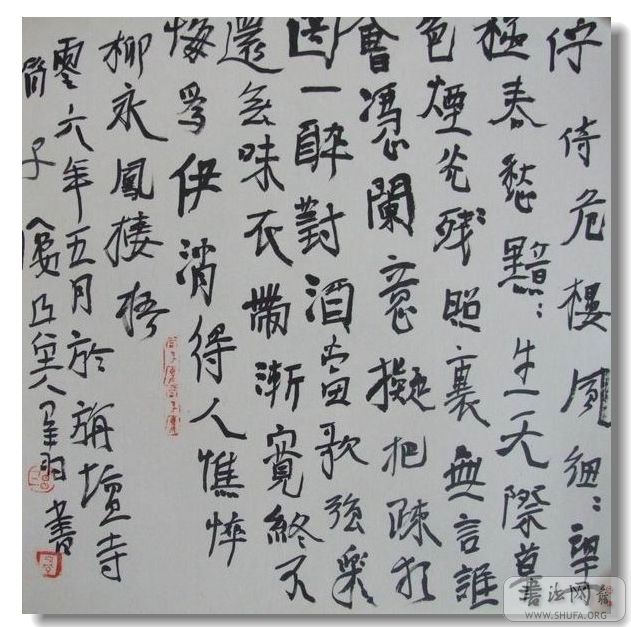 佇倚危樓風細〻望
極春愁黯〻生天際草
色煙光殘照裏無言誰
會憑闌意擬把疎狂
圖一醉對酒當歌強樂
還無味衣帶漸寬終不
悔爲伊消得人憔悴
柳永鳳棲梧
零六年五月於旃檀寺
簡子書
書法网
WWW.SHUFA.ORG